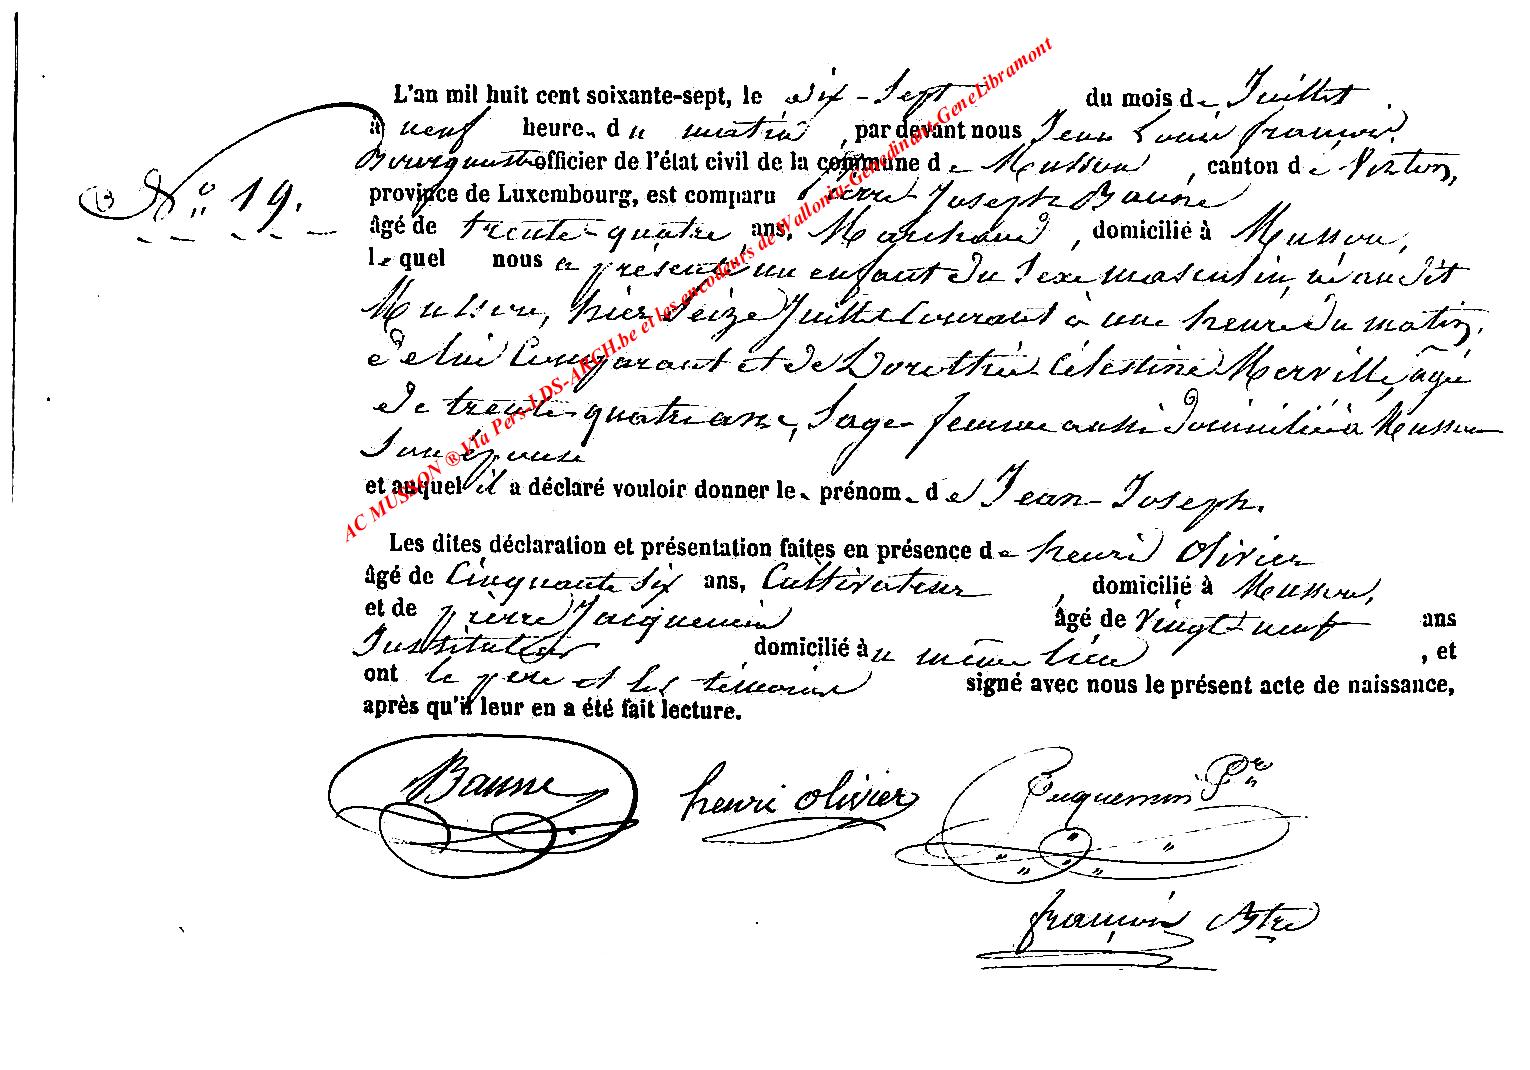 L'an mil huit cent soixante-sept, le dix-Sept du mois de Juillet.
à neuf heure. du matin, par devant nous Jean Louis françois
officier de l'état civil de la commune de Musson, canton de Virton,
N° 19. province de Luxembourg, est comparu Pierre Joseph Baune
âgé de trente-quatre ans, Marchand, domicilié à Musson,
lequel nous a présenté un enfant du Sexe masculin, né audit
Musson, hier Seize Juillet Courant à une heure du matin,
de lui Comparant et de Dorothée Célestine Merville, agée
de trente-quatre ans, Sage-femme aussi domiciliée à Musson
Son épouse
et auquel il a déclaré vouloir donner le prénom de Jean-Joseph.
Les dites déclaration et présentation faites en présence de henri Olivier
âgé de Cinquante Six ans, Cultivateur, domicilié à Musson,
et de pierre Jacquemin âgé de Vingt-neuf ans
Instituteur domicilié au même lieu, et
ont le père et les témoins signé avec nous le présent acte de naissance,
après qu'il leur en a été fait lecture.
Baune henri olivier Jacquemin Pre
françois
AC MUSSON ® Via Pers-LDS-ARCH.be et les encodeurs de Wallonia-Genedinant-GeneLibramont